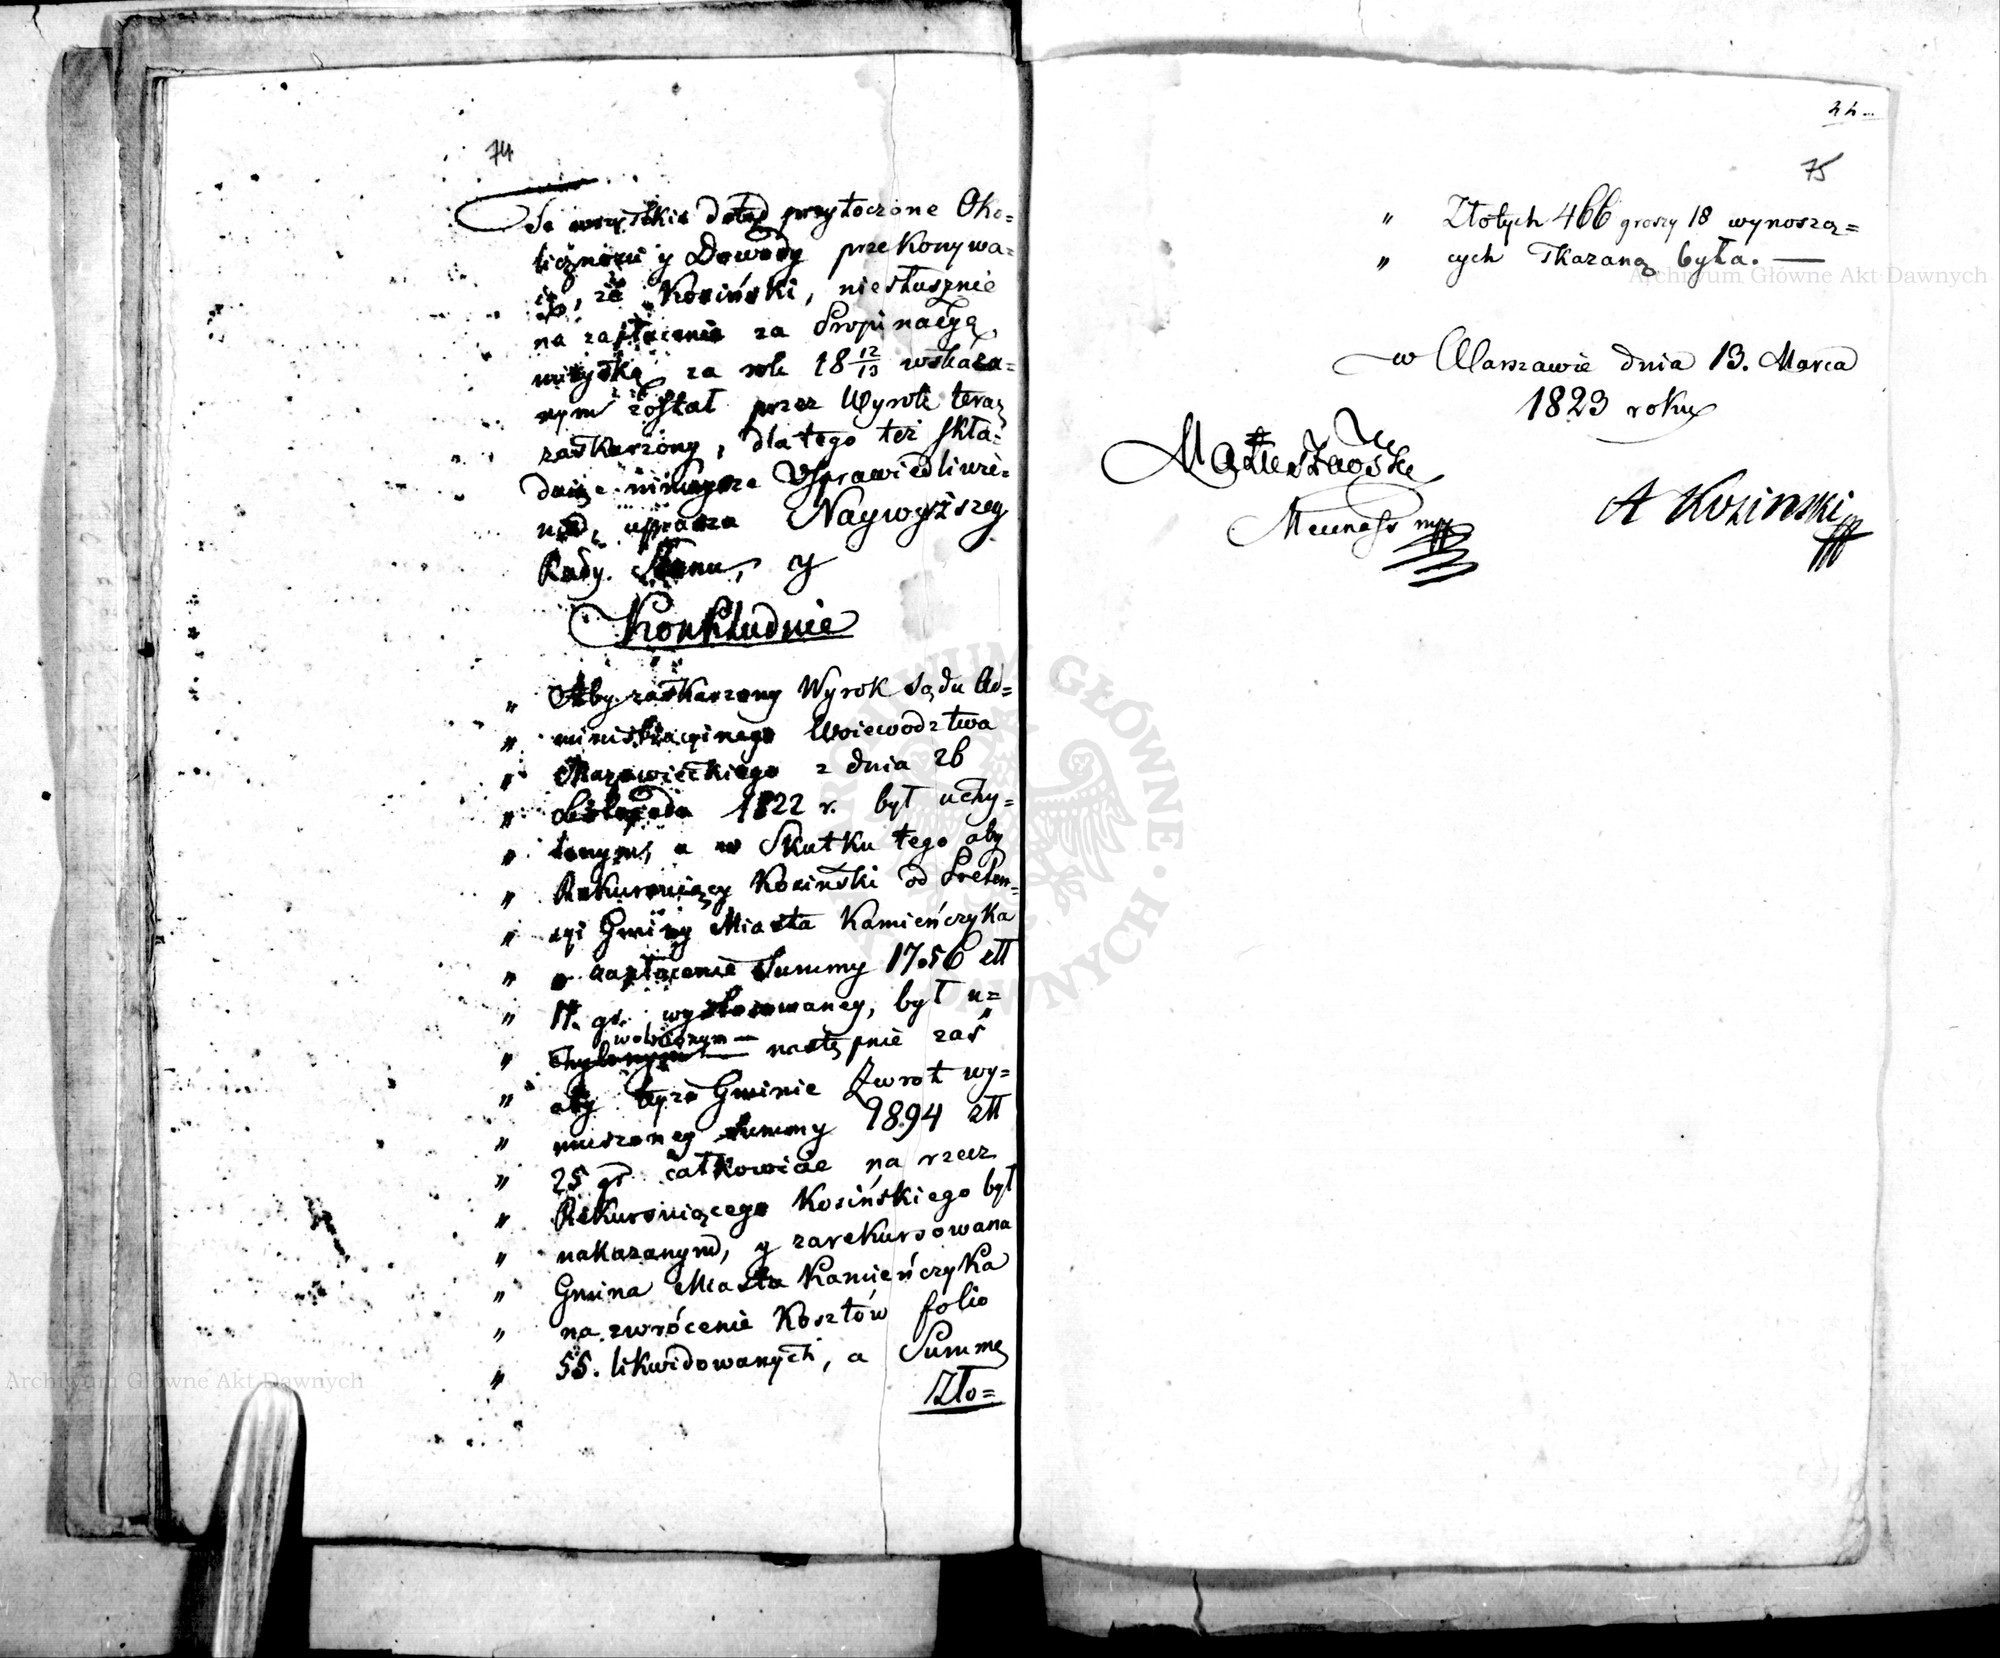 74
Te wszystkie dotąd przytoczone Oko=
liczności y Dowody przekonywa=
ią, że Kosiński, niesłusznie
na zapłacenie za Propinacyą
mieyską za rok 18 12/13 wskaza=
nym został przez Wyrok teraz
zaskarżony, dla tego też skła=
daiąc ninieysze Usprawiedliwie=
nie, uprasza Naywyższey
Rady Stanu, y
Konkluduie
„ Aby zaskarżony Wyrok Sądu Ad=
„ ministracyinego Woiewodztwa
„ Mazowieckiego z dnia 26
„ Listopada 1822 r. był uchy=
„ lonym, a w Skutku tego aby
„ Rekursuiący Kosiński od Preten=
„ syi Gminy Miasta Kamieńczyka
„ o zapłacenie Summy 1756 złł
„ 17. gr. wystosowaney, był u=
„ wolnionym — następnie zaś
„ aby teyże Gminie Zwrot wy=
„ muszoney Summy 9894 złł
„ 25 gr całkowicie na rzecz
„ Rekursuiącego Kosińskiego był
„ nakazanym, y zarekursowana
„ Gmina Miasta Kamieńczyka
„ na zwrócenie Kosztów folio
„ 55. likwidowanych, a Summę
Zło=
75
„ Złotych 466 groszy 18 wynoszą=
„ cych skazaną była. —
w Warszawie dnia 13. Marca
1823 roku
A Kozinski
Mecenas mp
Archiwum Główne Akt Dawnych
Archiwum Główne Akt Dawnych
ARCHIWUM GŁÓWNE AKT DAWNYCH